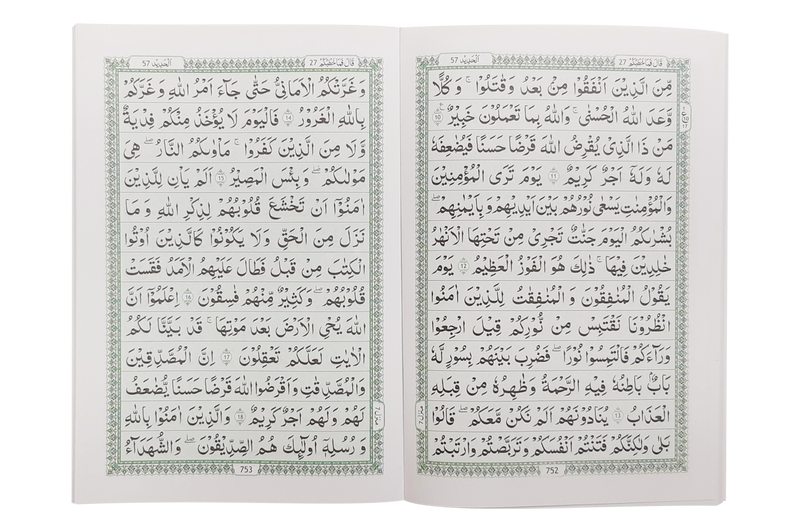 قَالَ فَمَا خَطْبُكُمْ 27
اَلْحَدِيْد 57
مِّنَ الَّذِيْنَ اَنْفَقُوْا مِنْۢ بَعْدُ وَ قٰتَلُوْا ؕ وَ كُلًّا
وَّعَدَ اللّٰهُ الْحُسْنٰى ؕ وَاللّٰهُ بِمَا تَعْمَلُوْنَ خَبِيْرٌ ۝۱۰
مَنْ ذَا الَّذِيْ يُقْرِضُ اللّٰهَ قَرْضًا حَسَنًا فَيُضٰعِفَهٗ
لَهٗ وَ لَهٗۤ اَجْرٌ كَرِيْمٌ ۝۱۱ يَوْمَ تَرَى الْمُؤْمِنِيْنَ
وَالْمُؤْمِنٰتِ يَسْعٰى نُوْرُهُمْ بَيْنَ اَيْدِيْهِمْ وَ بِاَيْمَانِهِمْ
بُشْرٰىكُمُ الْيَوْمَ جَنّٰتٌ تَجْرِيْ مِنْ تَحْتِهَا الْاَنْهٰرُ
خٰلِدِيْنَ فِيْهَا ؕ ذٰلِكَ هُوَ الْفَوْزُ الْعَظِيْمُ ۝۱۲ يَوْمَ
يَقُوْلُ الْمُنٰفِقُوْنَ وَ الْمُنٰفِقٰتُ لِلَّذِيْنَ اٰمَنُوا
انْظُرُوْنَا نَقْتَبِسْ مِنْ نُّوْرِكُمْ ۚ قِيْلَ ارْجِعُوْا
وَرَآءَكُمْ فَالْتَمِسُوْا نُوْرًا ؕ فَضُرِبَ بَيْنَهُمْ بِسُوْرٍ لَّهٗ
بَابٌ ؕ بَاطِنُهٗ فِيْهِ الرَّحْمَةُ وَ ظَاهِرُهٗ مِنْ قِبَلِهِ
الْعَذَابُ ۝۱۳ يُنَادُوْنَهُمْ اَلَمْ نَكُنْ مَّعَكُمْ ؕ قَالُوْا
بَلٰى وَلٰكِنَّكُمْ فَتَنْتُمْ اَنْفُسَكُمْ وَ تَرَبَّصْتُمْ وَ ارْتَبْتُمْ
752
قَالَ فَمَا خَطْبُكُمْ 27
اَلْحَدِيْد 57
وَ غَرَّتْكُمُ الْاَمَانِيُّ حَتّٰى جَآءَ اَمْرُ اللّٰهِ وَ غَرَّكُمْ
بِاللّٰهِ الْغَرُوْرُ ۝۱۴ فَالْيَوْمَ لَا يُؤْخَذُ مِنْكُمْ فِدْيَةٌ
وَّلَا مِنَ الَّذِيْنَ كَفَرُوْا ؕ مَاْوٰىكُمُ النَّارُ ؕ هِيَ
مَوْلٰىكُمْ ؕ وَ بِئْسَ الْمَصِيْرُ ۝۱۵ اَلَمْ يَاْنِ لِلَّذِيْنَ
اٰمَنُوْۤا اَنْ تَخْشَعَ قُلُوْبُهُمْ لِذِكْرِ اللّٰهِ وَ مَا
نَزَلَ مِنَ الْحَقِّ ۙ وَلَا يَكُوْنُوْا كَالَّذِيْنَ اُوْتُوا
الْكِتٰبَ مِنْ قَبْلُ فَطَالَ عَلَيْهِمُ الْاَمَدُ فَقَسَتْ
قُلُوْبُهُمْ ؕ وَ كَثِيْرٌ مِّنْهُمْ فٰسِقُوْنَ ۝۱۶ اِعْلَمُوْۤا اَنَّ
اللّٰهَ يُحْيِ الْاَرْضَ بَعْدَ مَوْتِهَا ؕ قَدْ بَيَّنَّا لَكُمُ
الْاٰيٰتِ لَعَلَّكُمْ تَعْقِلُوْنَ ۝۱۷ اِنَّ الْمُصَّدِّقِيْنَ
وَالْمُصَّدِّقٰتِ وَاَقْرَضُوا اللّٰهَ قَرْضًا حَسَنًا يُّضٰعَفُ
لَهُمْ وَ لَهُمْ اَجْرٌ كَرِيْمٌ ۝۱۸ وَالَّذِيْنَ اٰمَنُوْا بِاللّٰهِ
وَ رُسُلِهٖۤ اُولٰٓئِكَ هُمُ الصِّدِّيْقُوْنَ ۖ وَالشُّهَدَآءُ
753